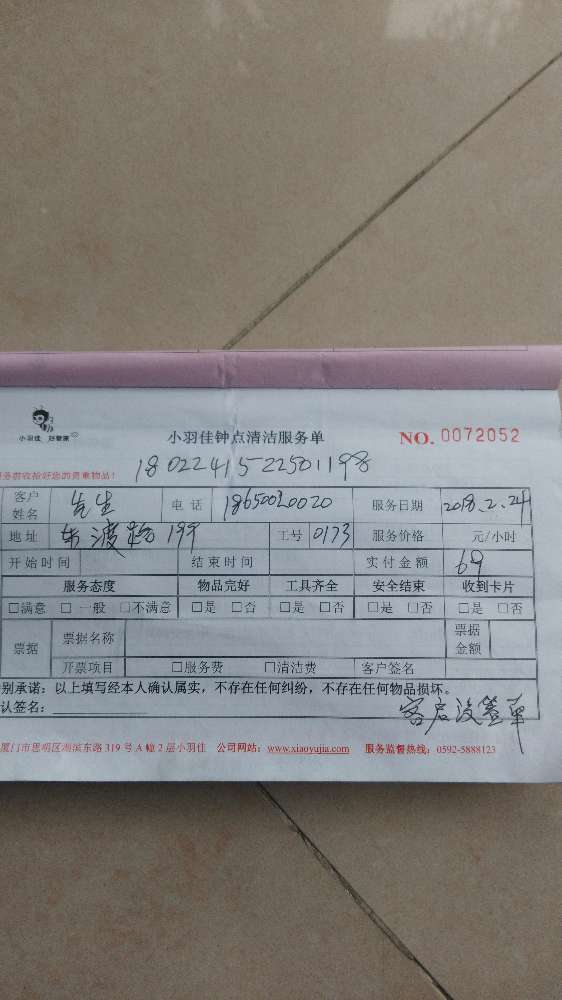 小羽佳 好管家
小羽佳钟点清洁服务单 NO. 0072052
务前收拾好您的贵重物品!
1802241522501198
客户姓名 先生 电话 18650020020 服务日期 2018.2.24
地址 东渡路199 工号 0173 服务价格 元/小时
开始时间 结束时间 实付金额 69
服务态度 物品完好 工具齐全 安全结束 收到卡片
□满意 □一般 □不满意 □是 □否 □是 □否 □是 □否 □是 □否
票据 票据名称 票据金额
开票项目 □服务费 □清洁费 客户签名
别承诺：以上填写经本人确认属实，不存在任何纠纷，不存在任何物品损坏。
认签名：
客户没签单
厦门市思明区湖滨东路 319 号 A 幢 2 层小羽佳 公司网站：www.xiaoyujia.com 服务监督热线：0592-5888123